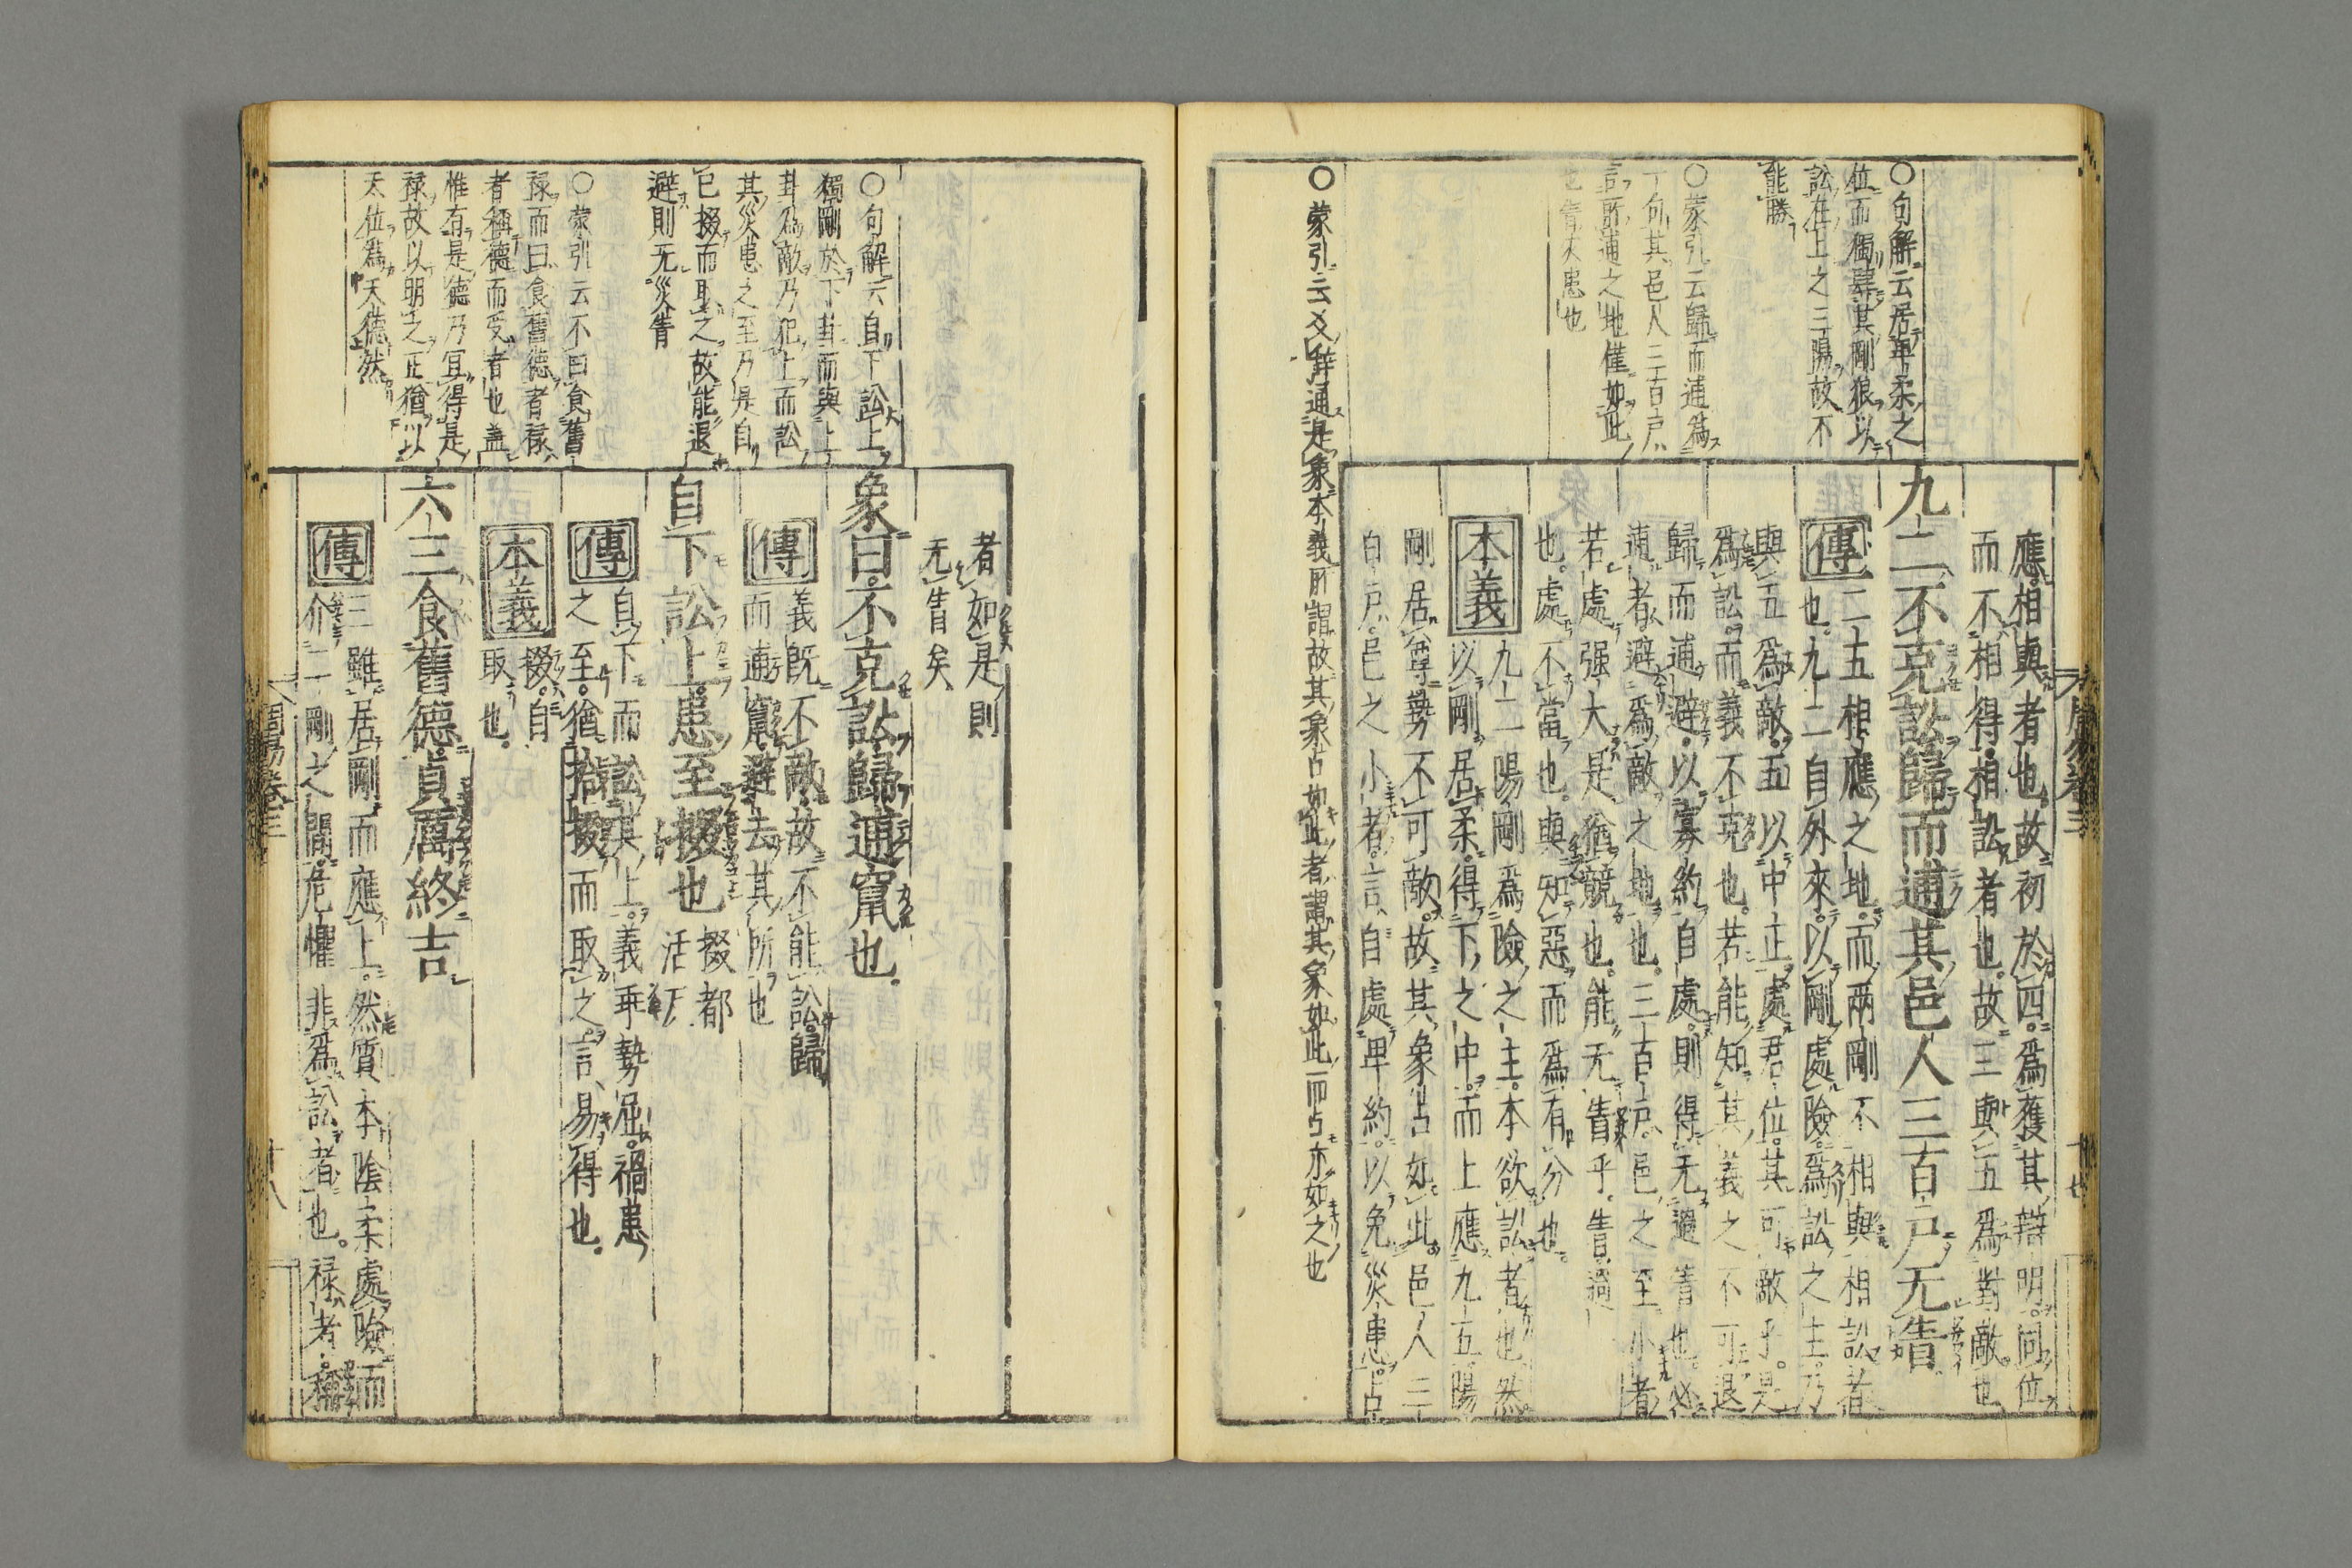 周易卷三
十七
○句解云居陰柔之
位而獨肆其剛狠以
訟在上之三陽故不
能勝
○蒙引云歸而逋爲
一句其邑人三百戶
言所逋之地僅如此
也眚大患也
應相與者也故初於四爲獲其辯明同位
而不相得相訟者也故三與五爲對敵也
九二不克訟歸而逋其邑人三百戶无眚
傳二五相應之地而兩剛不相與相訟者
也九二自外來以剛處險爲訟之主乃
與五爲敵五以中正處君位其可敵乎是
爲訟而義不克也若能知其義之不可退
歸而逋避以寡約自處則得无過眚也必
逋者避爲敵之地也三百戶邑之至小者
若處强大是猶競也能无眚乎眚過
也處不當也與知惡而爲有分也
本義九二陽剛爲險之主本欲訟者也然
以剛居柔得下之中而上應九五陽
剛居尊勢不可敵故其象占如此邑人三
百戶邑之小者言自處卑約以免災患占
○蒙引云爻辭通是象本義所謂故其象占如此者謂其象如此而占亦如之也
○句解云自下訟上
獨剛於下卦而與上
卦爲敵乃犯上而訟
其災患之至乃是自
已掇而取之故能退
避則无災眚
○蒙引云不曰食舊
祿而曰食舊德者祿
者稱德而受者也蓋
惟有是德乃宜得是
祿故以明之正猶以
天位爲天德然
者如是則
无眚矣
象曰不克訟歸逋竄也
傳義既不敵故不能訟歸
而逋竄避去其所也
自下訟上患至掇也掇都
活反
傳自下而訟其上義乖勢屈禍患
之至猶拾掇而取之言易得也
本義掇自
取也
六三食舊德貞厲終吉
傳三雖居剛而應上然質本陰柔處險而
介二剛之間危懼非爲訟者也祿者稱
周易卷三
十八